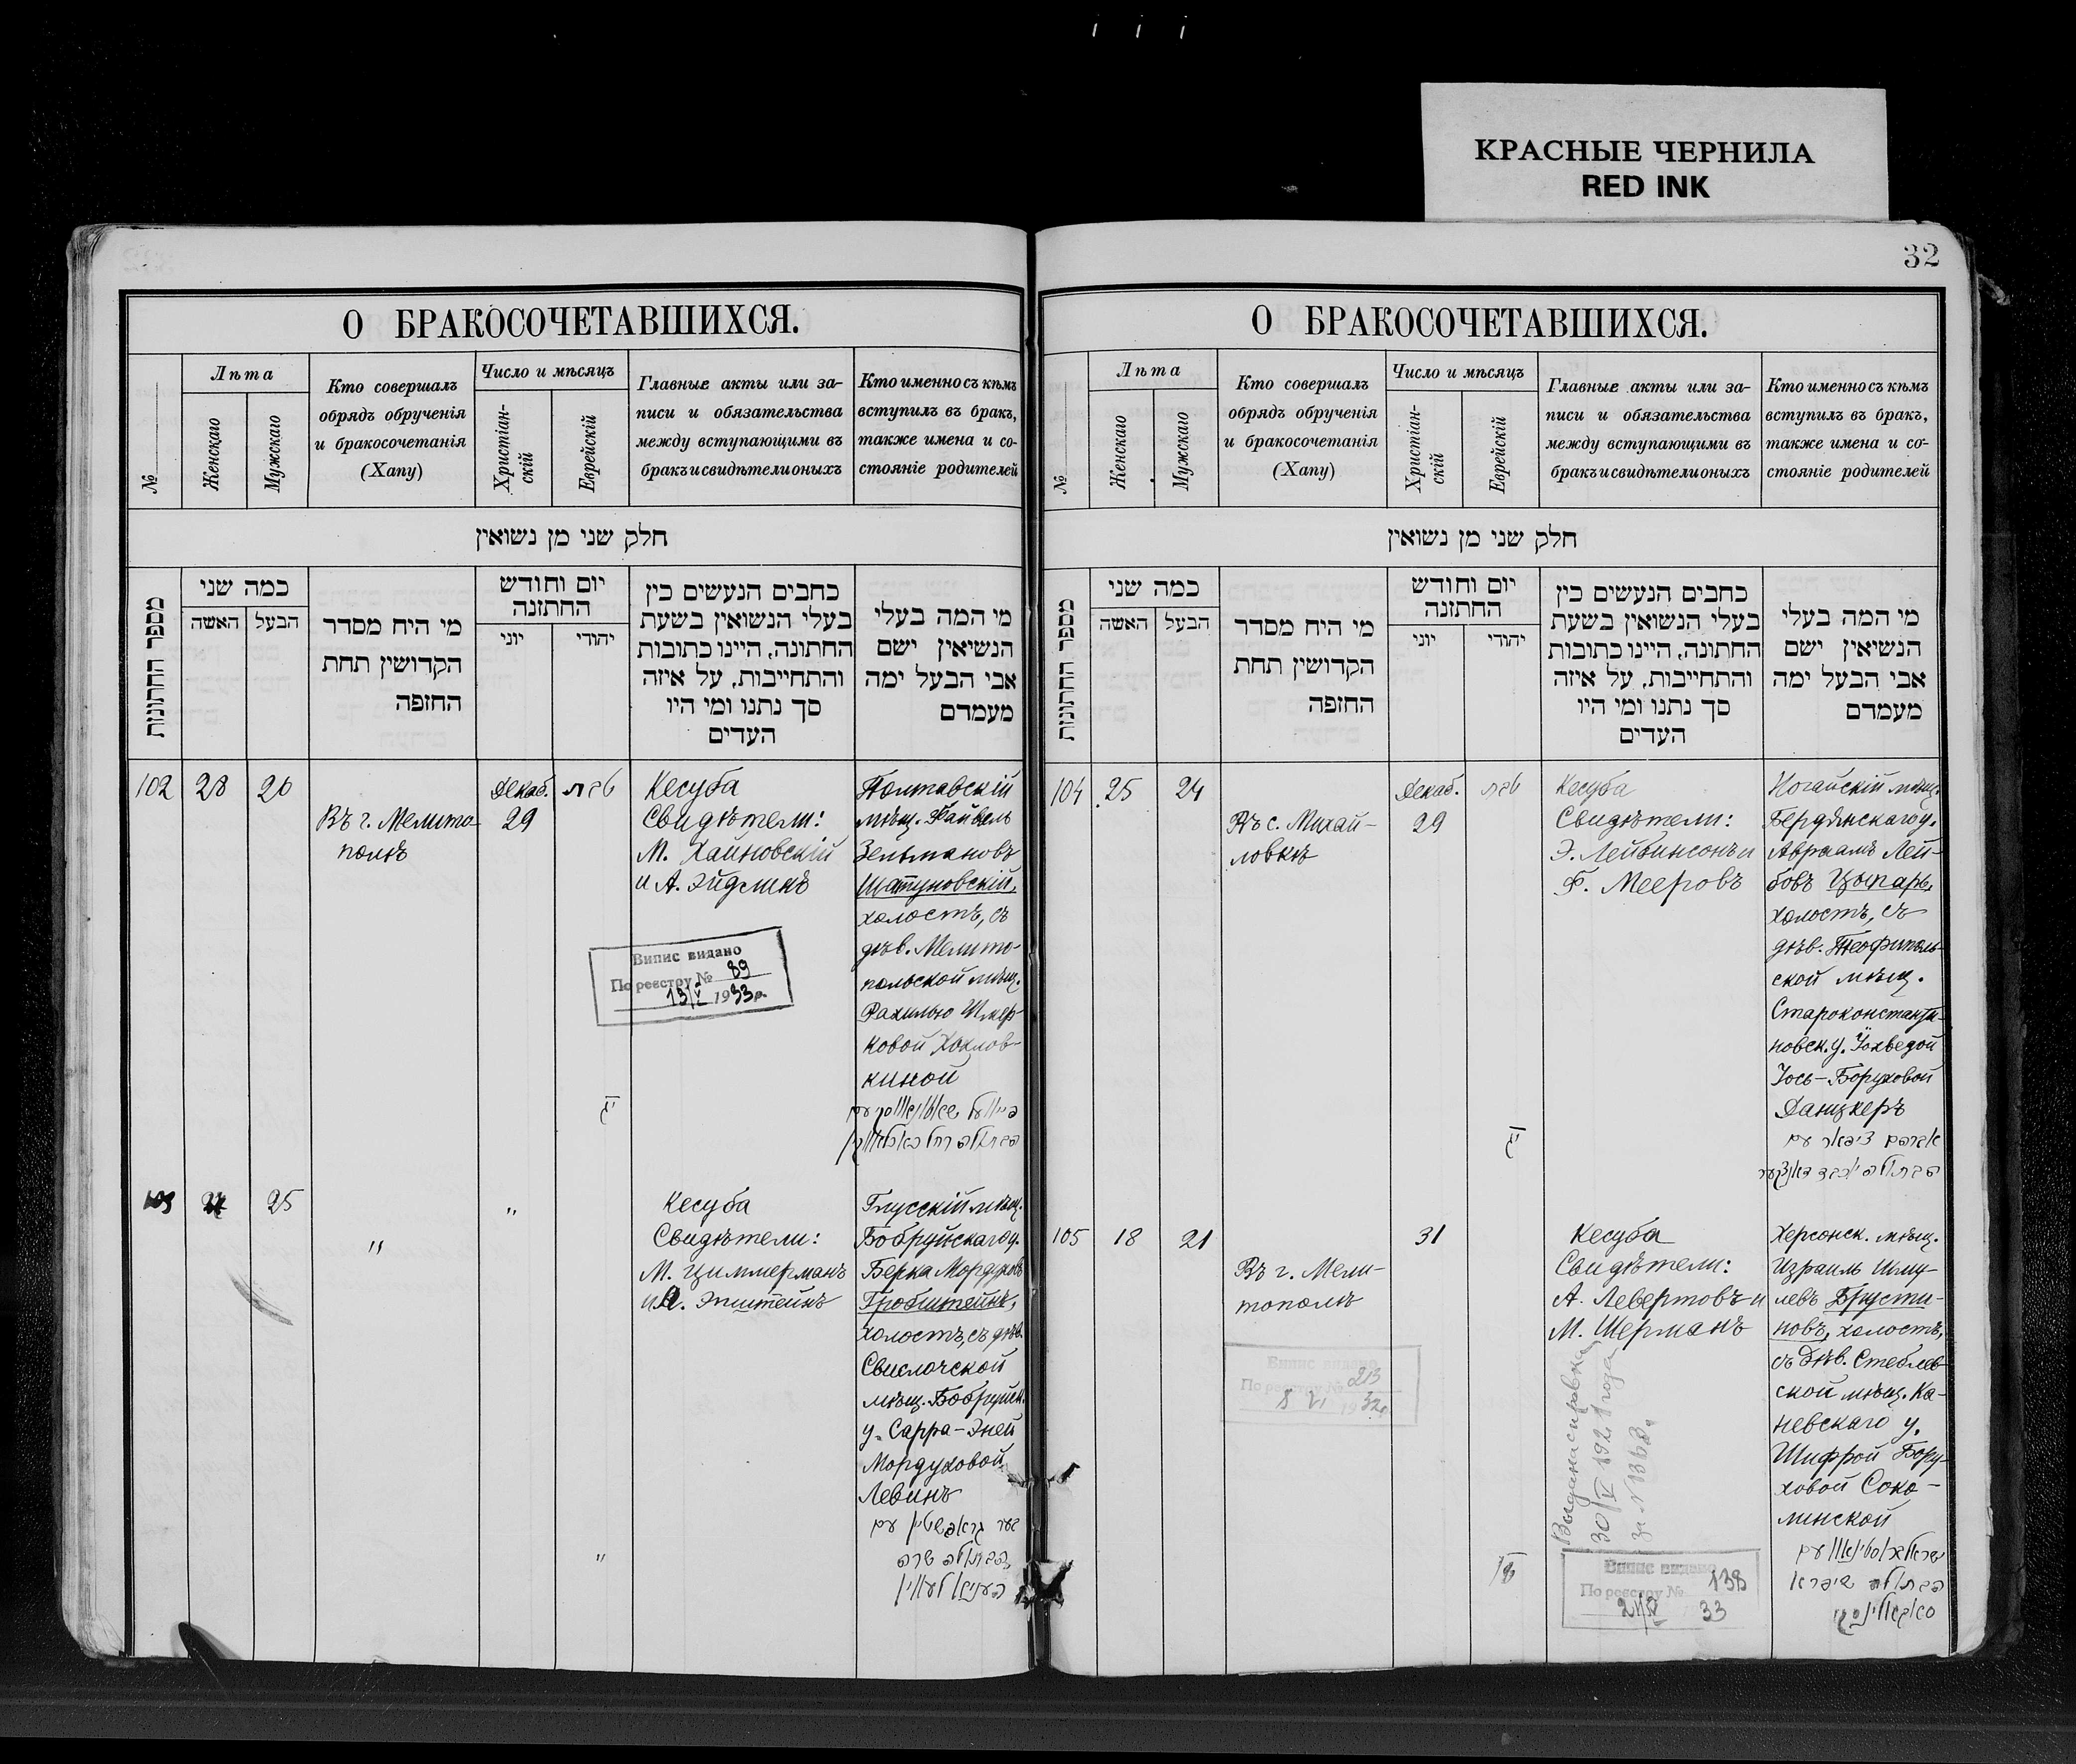 КРАСНЫЕ ЧЕРНИЛА
RED INK
О БРАКОСОЧЕТАВШИХСЯ.
№
Лѣта
Женскаго
Мужскаго
Кто совершалъ
обрядъ обрученія
и бракосочетанія
(Хапу)
Число и мѣсяцъ
Христіан-
скій
Еврейскій
Главные акты или за-
писи и обязательства
между вступающими въ
бракъ и свидѣтели оныхъ
Кто именно съ кѣмъ
вступилъ въ бракъ,
также имена и со-
стояніе родителей
חלק שני מן נשואין
מספר החתונות
כמה שני
האשה
הבעל
מי היח מסדר
הקדושין תחת
החזפה
יום וחודש
החתזנה
יוני
יהודי
כחבים הנעשים כין
בעלי הנשואין בשעת
החתונה, היינו כתובות
והתחייבות, על איזה
סך נתנו ומי היו
העדים
מי המה בעלי
הנשיאין ישם
אבי הבעל ימה
מעמדם
102
28
26
Въ г. Мелито-
полѣ
Декаб.
29
טבת
Кесуба
Свидѣтели:
М. Хайновскій
и А. Эйдлинъ
Випис видано
По реестру № 89
13/V 1933р.
Полтавскій
мѣщ. Файвель
Зельмановъ
Шатуновскій,
холостъ, съ
дѣв. Мелито-
польской мѣщ.
Рахилью Шмер-
ковой Хохлов-
киной
103
25
"
"
"
Кесуба
Свидѣтели:
М. Циммерманъ
и А. Эпштейнъ
Глусскій мѣщ.
Бобруйскаго у.
Берка Мордуховъ
Гробштейнъ,
холостъ, съ дѣв.
Свислочской
мѣщ. Бобруйск.
у. Сарра-Эней
Мордуховой
Левинъ
32
О БРАКОСОЧЕТАВШИХСЯ.
№
Лѣта
Женскаго
Мужскаго
Кто совершалъ
обрядъ обрученія
и бракосочетанія
(Хапу)
Число и мѣсяцъ
Христіан-
скій
Еврейскій
Главные акты или за-
писи и обязательства
между вступающими въ
бракъ и свидѣтели оныхъ
Кто именно съ кѣмъ
вступилъ въ бракъ,
также имена и со-
стояніе родителей
חלק שני מן נשואין
מספר החתונות
כמה שני
האשה
הבעל
מי היח מסדר
הקדושין תחת
החזפה
יום וחודש
החתזנה
יוני
יהודי
כחבים הנעשים כין
בעלי הנשואין בשעת
החתונה, היינו כתובות
והתחייבות, על איזה
סך נתנו ומי היו
העדים
מי המה בעלי
הנשיאין ישם
אבי הבעל ימה
מעמדם
104
25
24
Въ с. Михай-
ловкѣ
Декаб.
29
טבת
Кесуба
Свидѣтели:
Э. Лейбинсонъ и
Ф. Мееровъ
Ногайскій мѣщ.
Бердянскаго у.
Авраамъ Лей-
бовъ Цыпаръ,
холостъ, съ
дѣв. Теофиполь-
ской мѣщ.
Староконстанти-
новск. у. Іохведой
Іось-Боруховой
Данцкеръ
105
18
21
Въ г. Мели-
тополѣ
31
Кесуба
Свидѣтели:
А. Левертовъ и
М. Шерманъ
Випис видано
По реестру № 213
8 VI 1932р.
30/V 1921 года
Випис видано
По реестру № 138
33
Херсонск. мѣщ.
Израиль Шму-
левъ Брусти-
новъ, холостъ,
съ дѣв. Стеблев-
ской мѣщ. Ка-
невскаго у.
Шифрой Бору-
ховой Соко-
линской